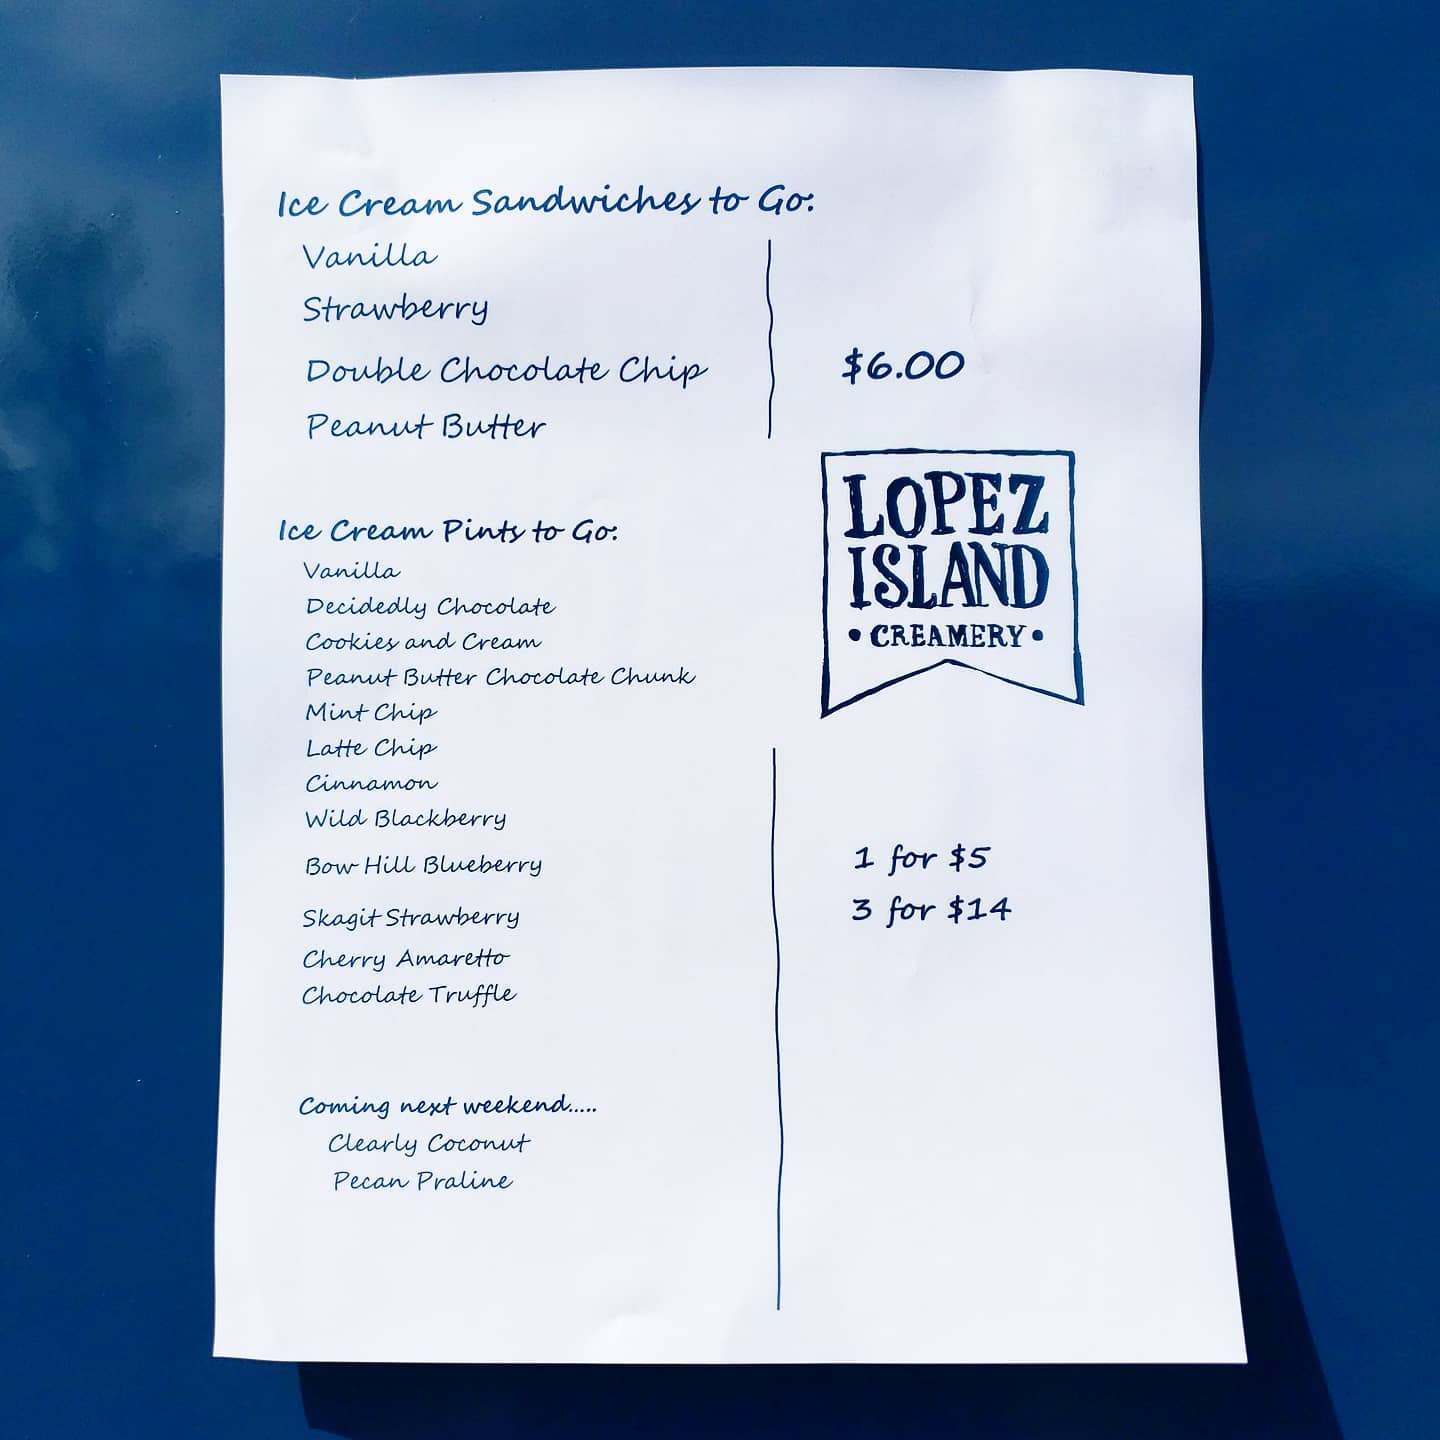 Ice Cream Sandwiches to Go:
Vanilla
Strawberry
Double Chocolate Chip
Peanut Butter
$6.00
LOPEZ
ISLAND
• CREAMERY •
Ice Cream Pints to Go:
Vanilla
Decidedly Chocolate
Cookies and Cream
Peanut Butter Chocolate Chunk
Mint Chip
Latte Chip
Cinnamon
Wild Blackberry
Bow Hill Blueberry
Skagit Strawberry
Cherry Amaretto
Chocolate Truffle
1 for $5
3 for $14
Coming next weekend.....
Clearly Coconut
Pecan Praline